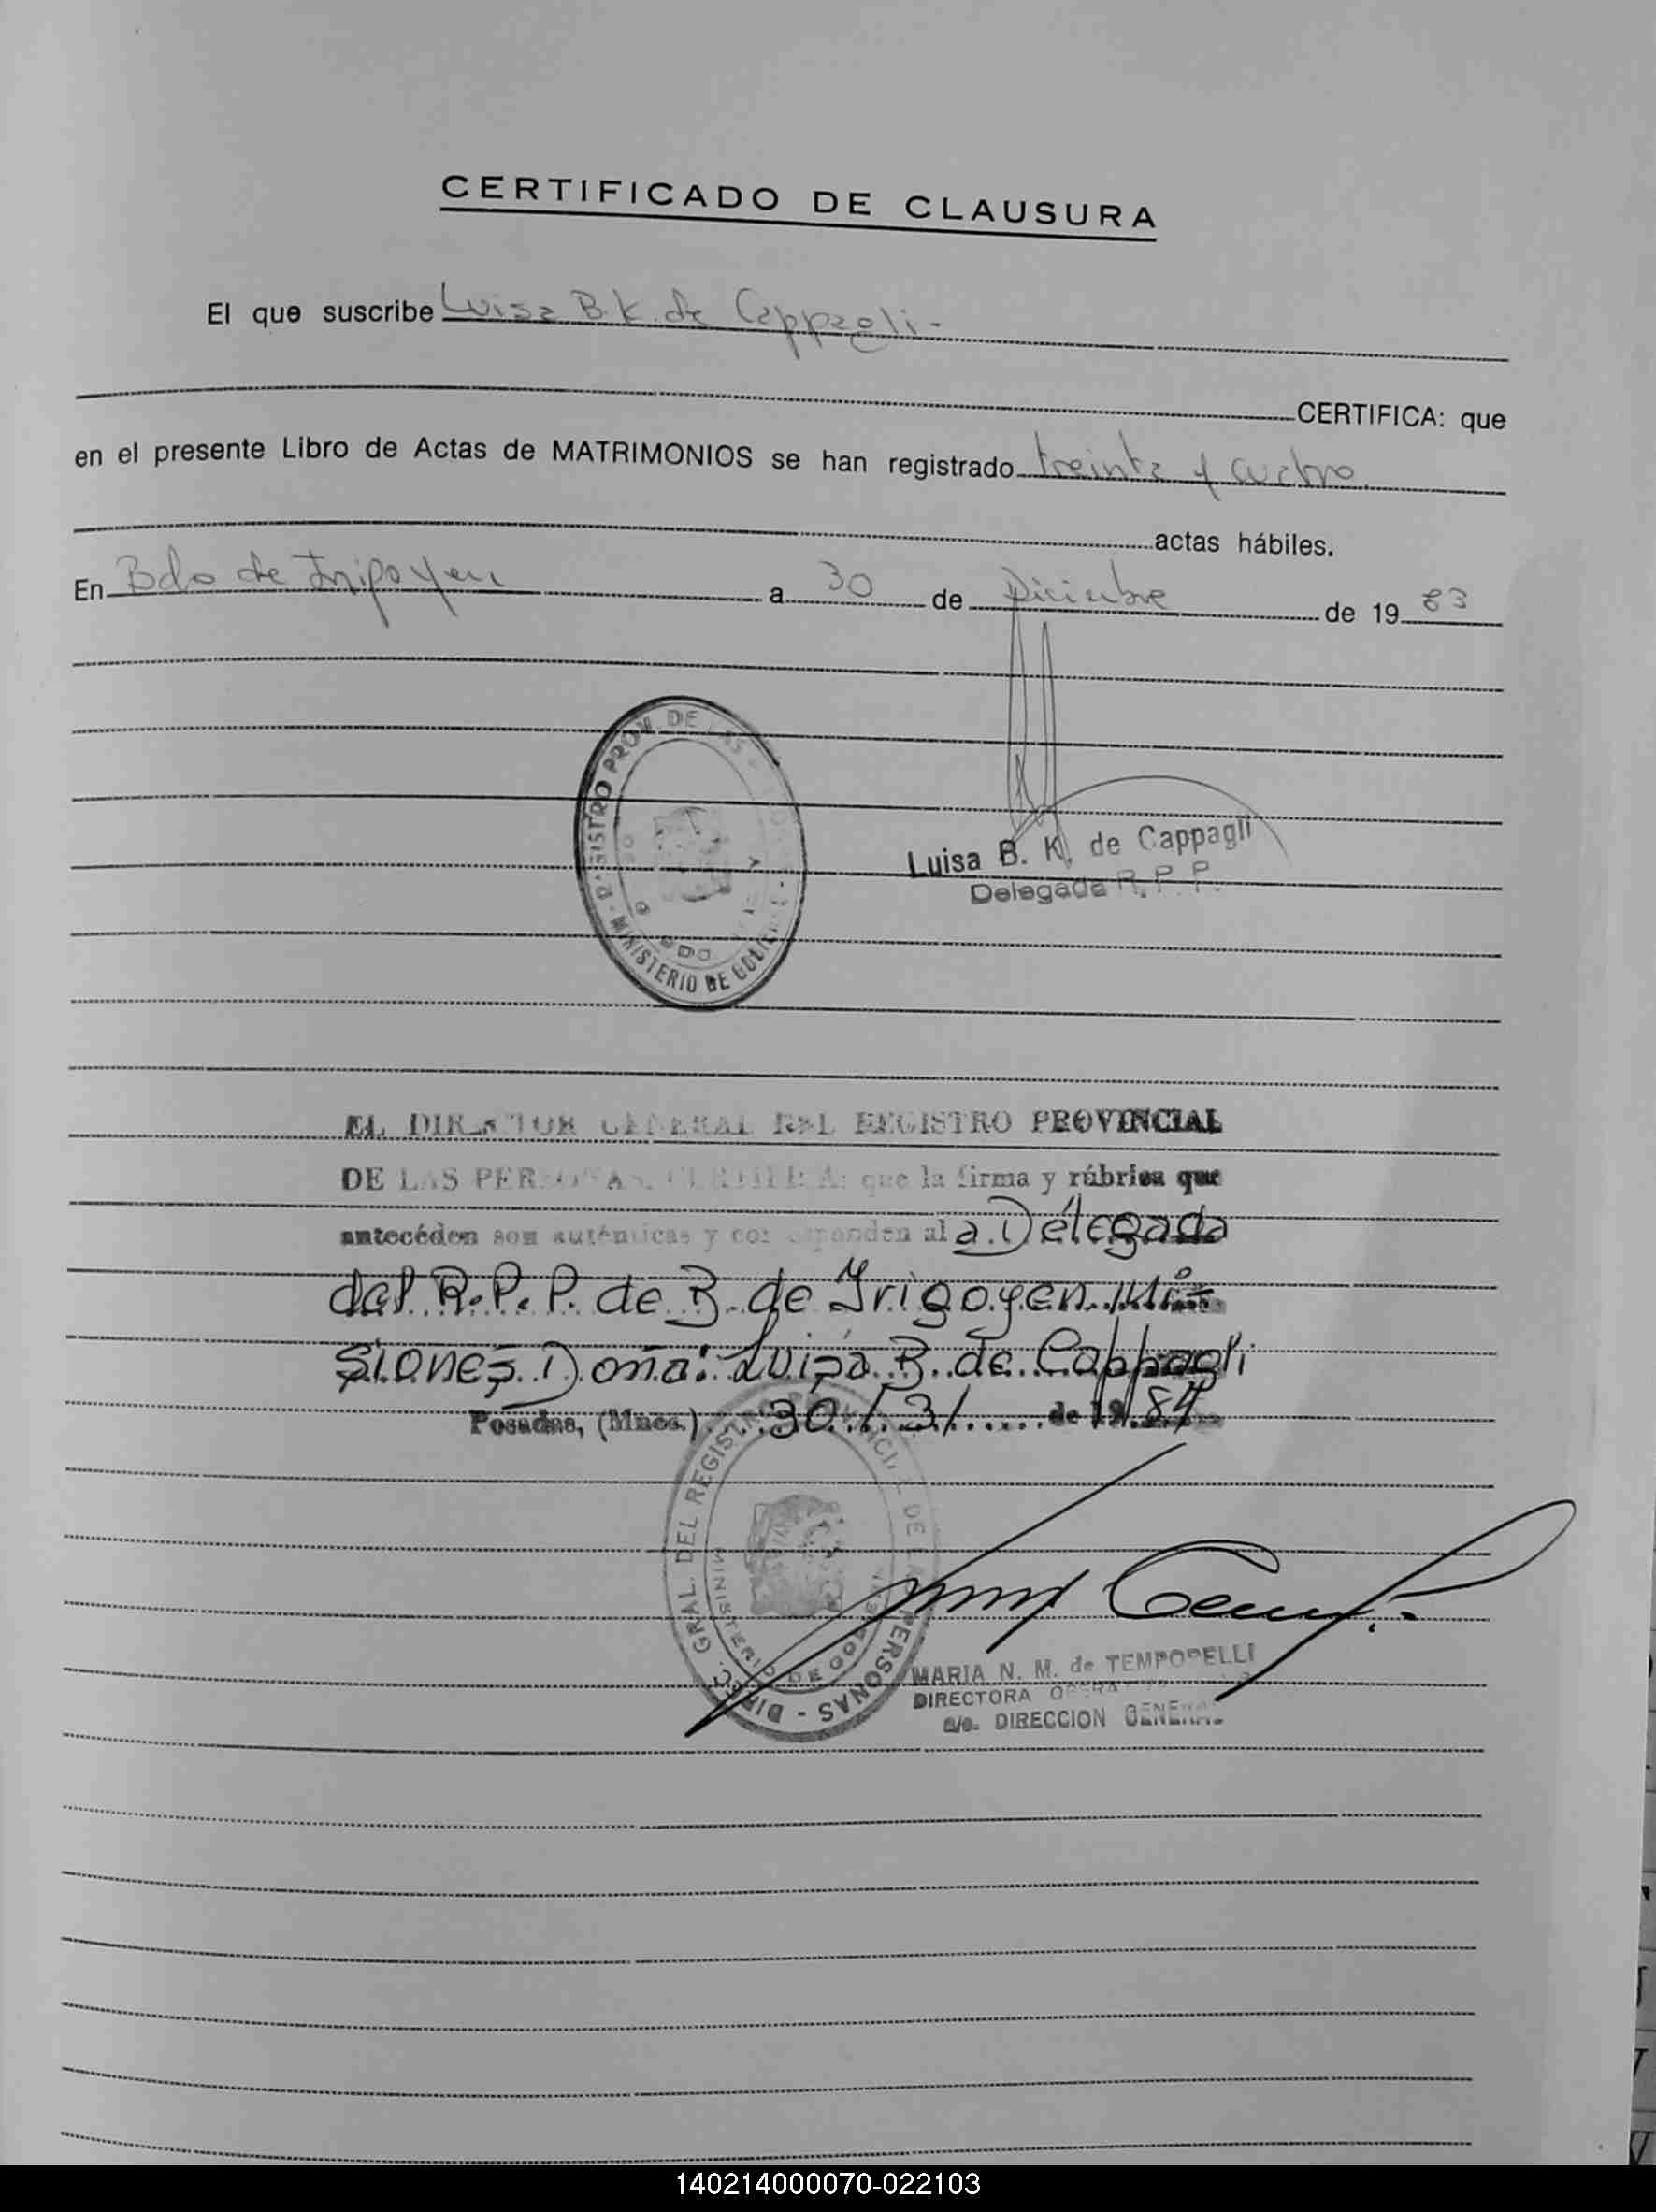 CERTIFICADO DE CLAUSURA
El que suscribe Luisa B. K. de Cappagli -
CERTIFICA: que
en el presente Libro de Actas de MATRIMONIOS se han registrado treinta y cuatro.
actas hábiles.
En Bdo de Irigoyen a 30 de Diciembre de 19 83
Luisa B. K. de Cappagli
Delegada R. P. P.
MINISTERIO DE
EL DIRECTOR GENERAL DEL REGISTRO PROVINCIAL
DE LAS PERSONAS, CERTIFICA: que la firma y rúbrica que
antecéden son auténticas y corresponden al a Delegada
del R.P.P. de B. de Irigoyen Mi-
siones Doña: Luisa B. de Cappagli
Posadas, (Mnes.) 30/3/ de 1984
DIREC. GRAL. DEL REGISTRO PROVINCIAL DE LAS PERSONAS -
MINISTERIO DE GOB
MARIA N. M. de TEMPORELLI
DIRECTORA
a/c. DIRECCION GENERAL
140214000070-022103